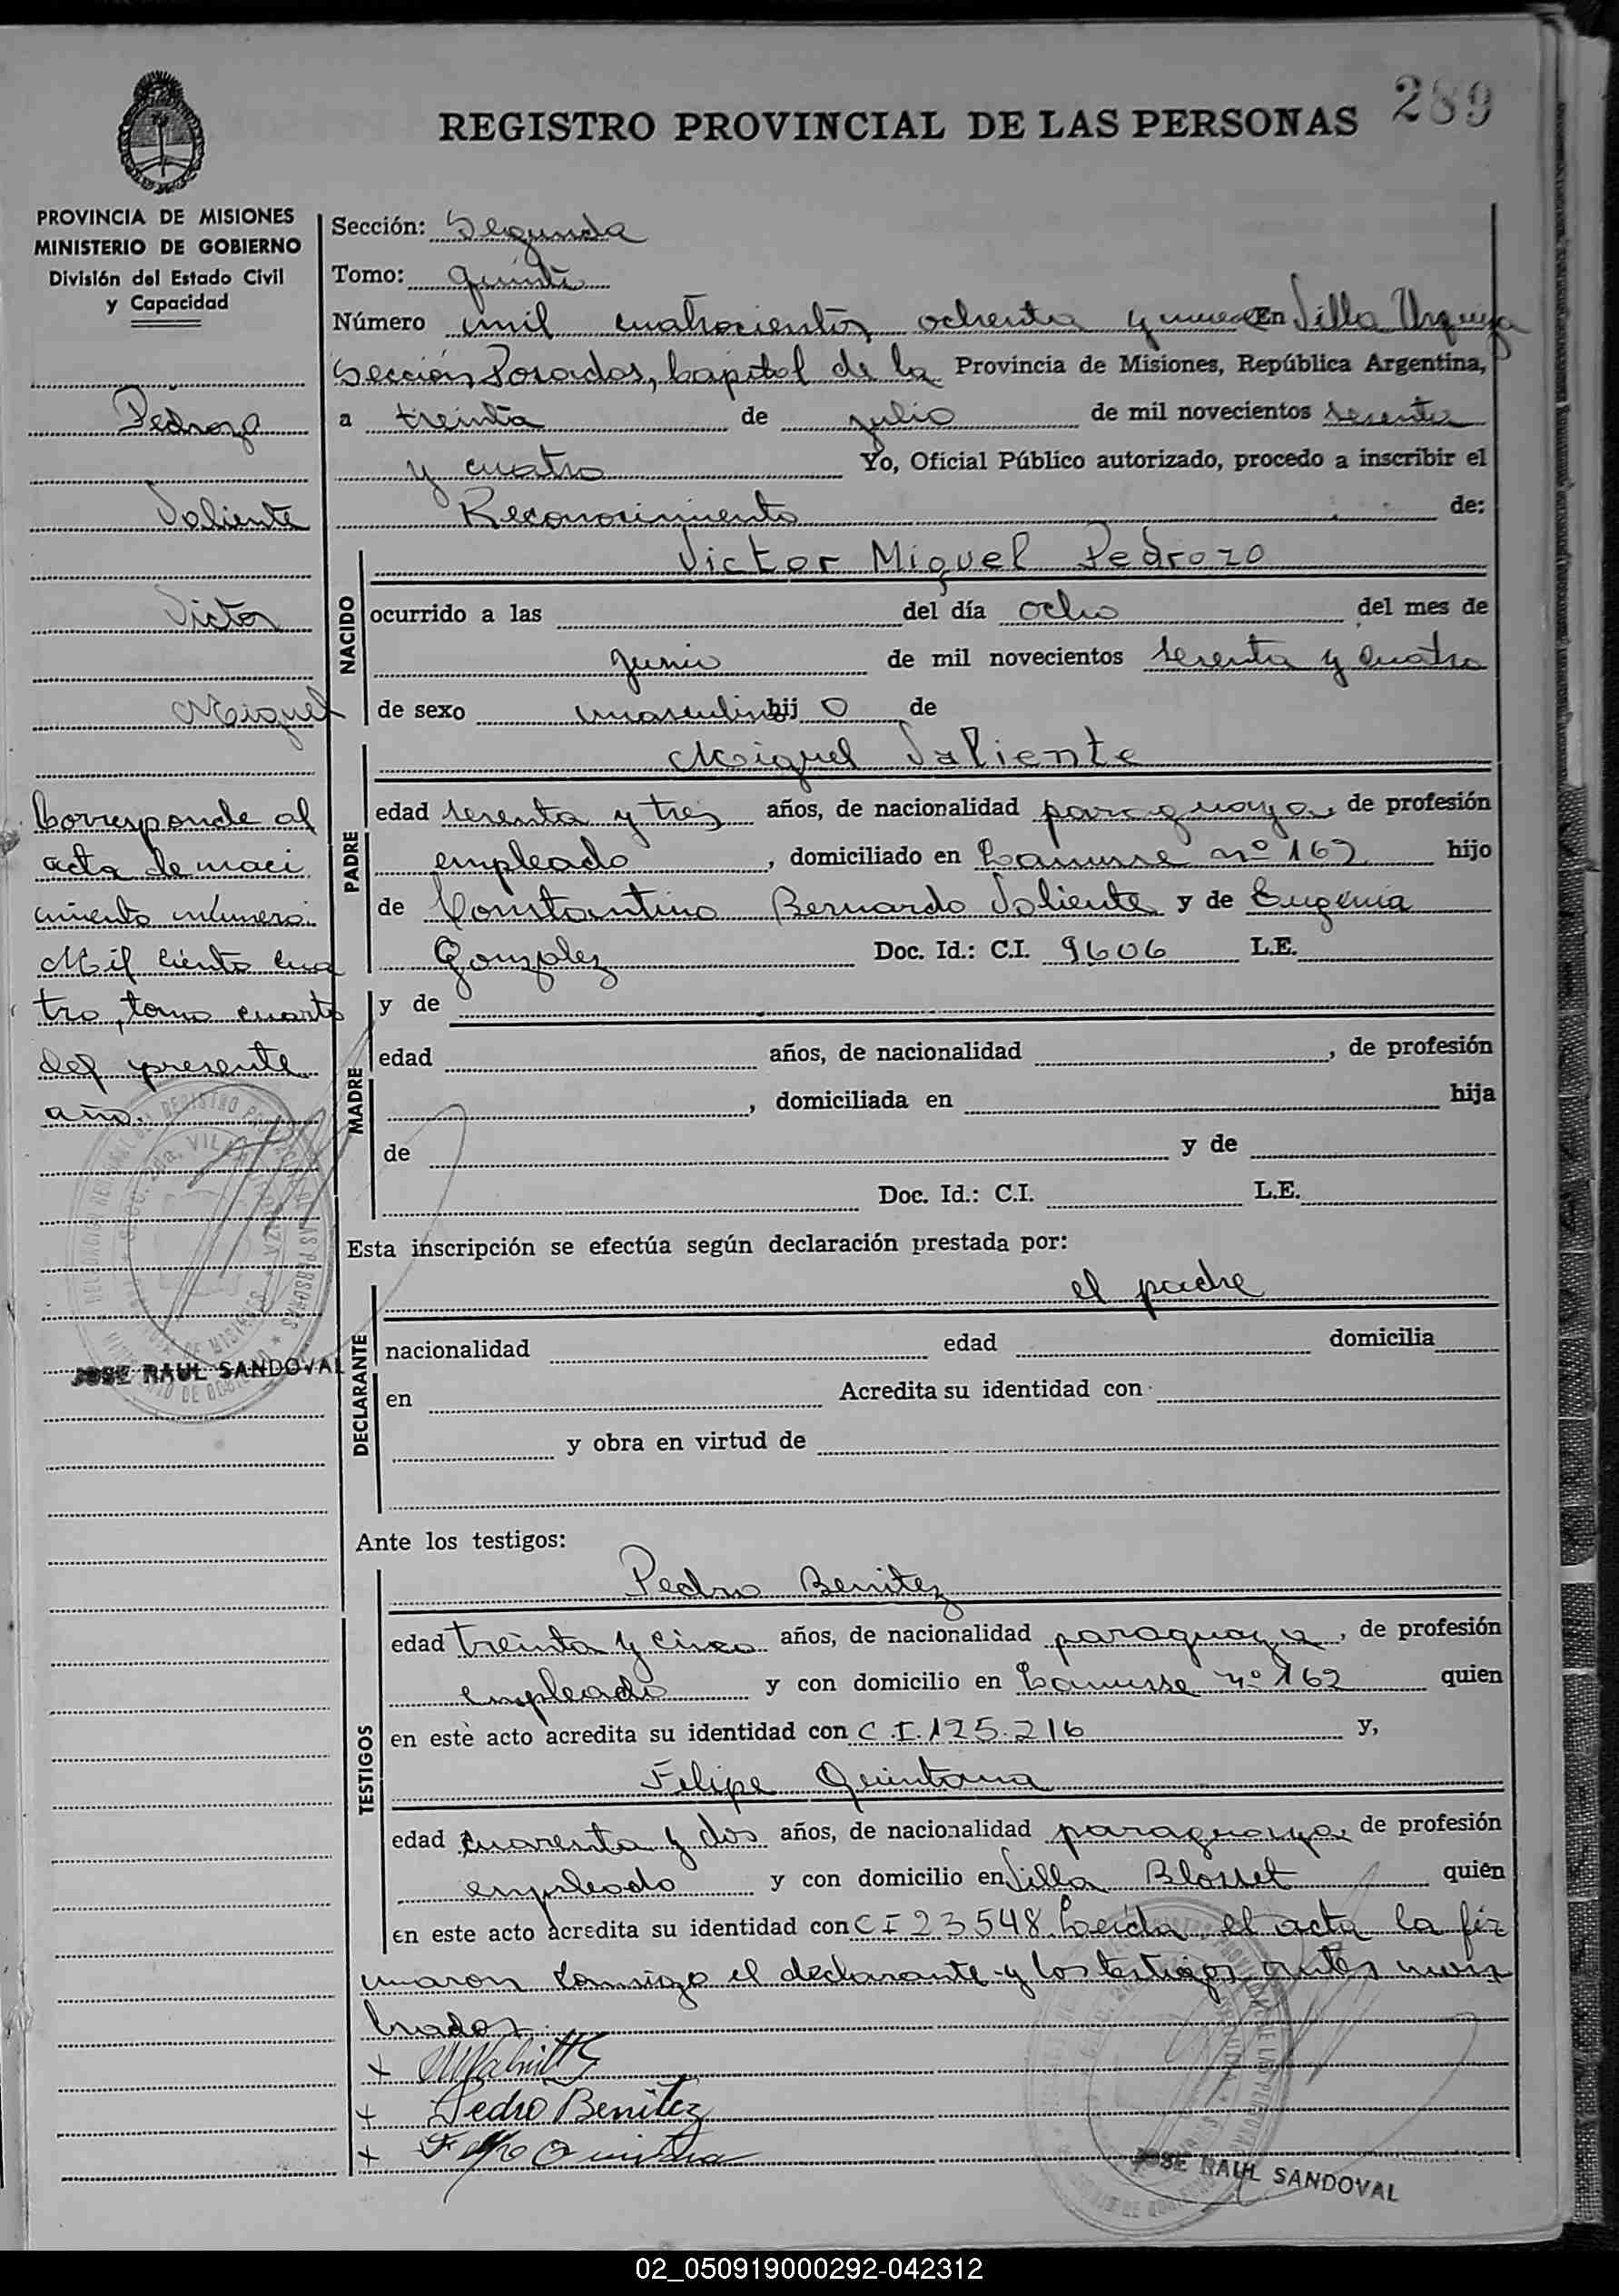 289
REGISTRO PROVINCIAL DE LAS PERSONAS
PROVINCIA DE MISIONES
MINISTERIO DE GOBIERNO
División del Estado Civil
y Capacidad
Pedrozo
Valiente
Victor
Miguel
Corresponde al
acta de naci
miento número
Mil ciento cua
tro, tomo cuarto
del presente
año.
JOSE RAUL SANDOVAL
Sección: Segunda
Tomo: quinto
Número mil cuatrocientos ochenta y nueve En Villa Urquiza
Sección Posadas, Capital de la Provincia de Misiones, República Argentina,
a treinta de julio de mil novecientos sesenta
y cuatro Yo, Oficial Público autorizado, procedo a inscribir el
Reconocimiento de:
NACIDO
Victor Miguel Pedrozo
ocurrido a las del día ocho del mes de
junio de mil novecientos sesenta y cuatro
de sexo masculino hij o de
PADRE
Miguel Valiente
edad sesenta y tres años, de nacionalidad paraguaya, de profesión
empleado, domiciliado en Lanusse nº 162 hijo
de Constantino Bernardo Valiente y de Eugenia
Gonzalez Doc. Id.: C.I. 9606 L.E.
MADRE
y de
edad años, de nacionalidad , de profesión
, domiciliada en hija
de y de
Doc. Id.: C.I. L.E.
Esta inscripción se efectúa según declaración prestada por:
DECLARANTE
el padre
nacionalidad edad domicilia
en Acredita su identidad con
y obra en virtud de
Ante los testigos:
TESTIGOS
Pedro Benitez
edad treinta y cinco años, de nacionalidad paraguaya, de profesión
empleado y con domicilio en Lanusse nº 162 quien
en este acto acredita su identidad con C.I. 125.216 y,
Felipe Quintana
edad cuarenta y dos años, de nacionalidad paraguaya, de profesión
empleado y con domicilio en Villa Blosset quien
en este acto acredita su identidad con C I 23548. Leida el acta la fir
maron conmigo el declarante y los testigos antes nom
brados.
Pedro Benitez
JOSE RAUL SANDOVAL
02_050919000292-042312